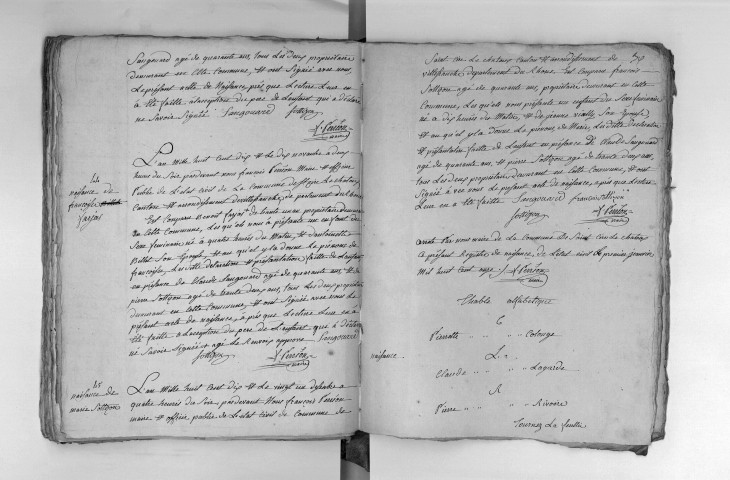 Sangouard agé de quarante ans, tous Les deux propriétaire
demeurant en Cette Commune, et ont Signié avec nous
Le présent acte de Naissance, près que Lecture Leur en
a Eté faitte alexception du pere de Lenfant que a déclaré
ne Savoir Signié Sangouard Sottizon
Perion
maire
144
naissance de
françoise
farjas
L'an Mille huit Cent dix et Le dix novembre a deux
heures du Soir pardevant nous françois Perion Maire et officier
Public de Letat Civil de La Commune de St Cyr Le chatoux,
Canton et arrondissement devillefranche, departement du Rhône
Est Comparu Benoit farjas de trente un ans propriétaire demeurant
en Cette Commune, Les quel nous a présenté un enfant du
Sexe feminin né à quatre heures du Matin, et dantoinette
Billet Son Epouse, et au quel y la donné Le prénom de
françoise, Les ditte déclaration et présentation faitte de Lenfant
en présence de Claude Sangouard agé de quarante ans, et de
pierre Sottizon agé de trente deux ans, tous Les deux propriétaire
demeurant en Cette Commune, et ont Signié avec nous Le
présent acte de naissance, a près que Lecture Leur en a
Eté faitte alexception du pere de Lenfant que à déclaré
ne Savoir Signié Le Renvois approuvé Sangouard
Sottizon Perion
maire
145
naissance de
marie Sottizon
L'an Mille huit Cent dix et Le vingt un Xbre a
quatre heures du Soir, pardevant Nous françois Perion
maire et officier public de Letat Civil de Commune de
Saint Cire Le chatoux Canton et arrondissement de
villefranche, departement du Rhone, Est Comparu françois
Sottizon agé de quarante ans, propriétaire demeurant en Cette
Commune, Les quels nous présente un enfant du Sexe feminin
né à dix heures du Matin, et de Son Epouse
et au quel y la donné Le prénom de Marie, Les ditte Declaration
et présentation faitte de Lenfant en présence de Claude Sangouard
agé de quarante ans, et pierre Sottizon agé de trente deux ans,
tous Les deux propriétaire demeurant en Cette Commune, et ont
Signié avec nous Le présent acte de naissance, apres que Lecture
Leur en a été faitte Sangouard françois Sottizon
Sottizon Perion
maire
arreté Par nous maire de La Commune de Saint Cire Le chatoux
Ce présent Registre de naissance, de Letat Civil Le premier janvier
Mil huit Cent onze Perion
maire
Thable alfabetique
C
Pierrette " " " Colonge
naissance
L
Claude " " " Lagarde
R
Pierre " " " Rivoire
Tournez La feuille